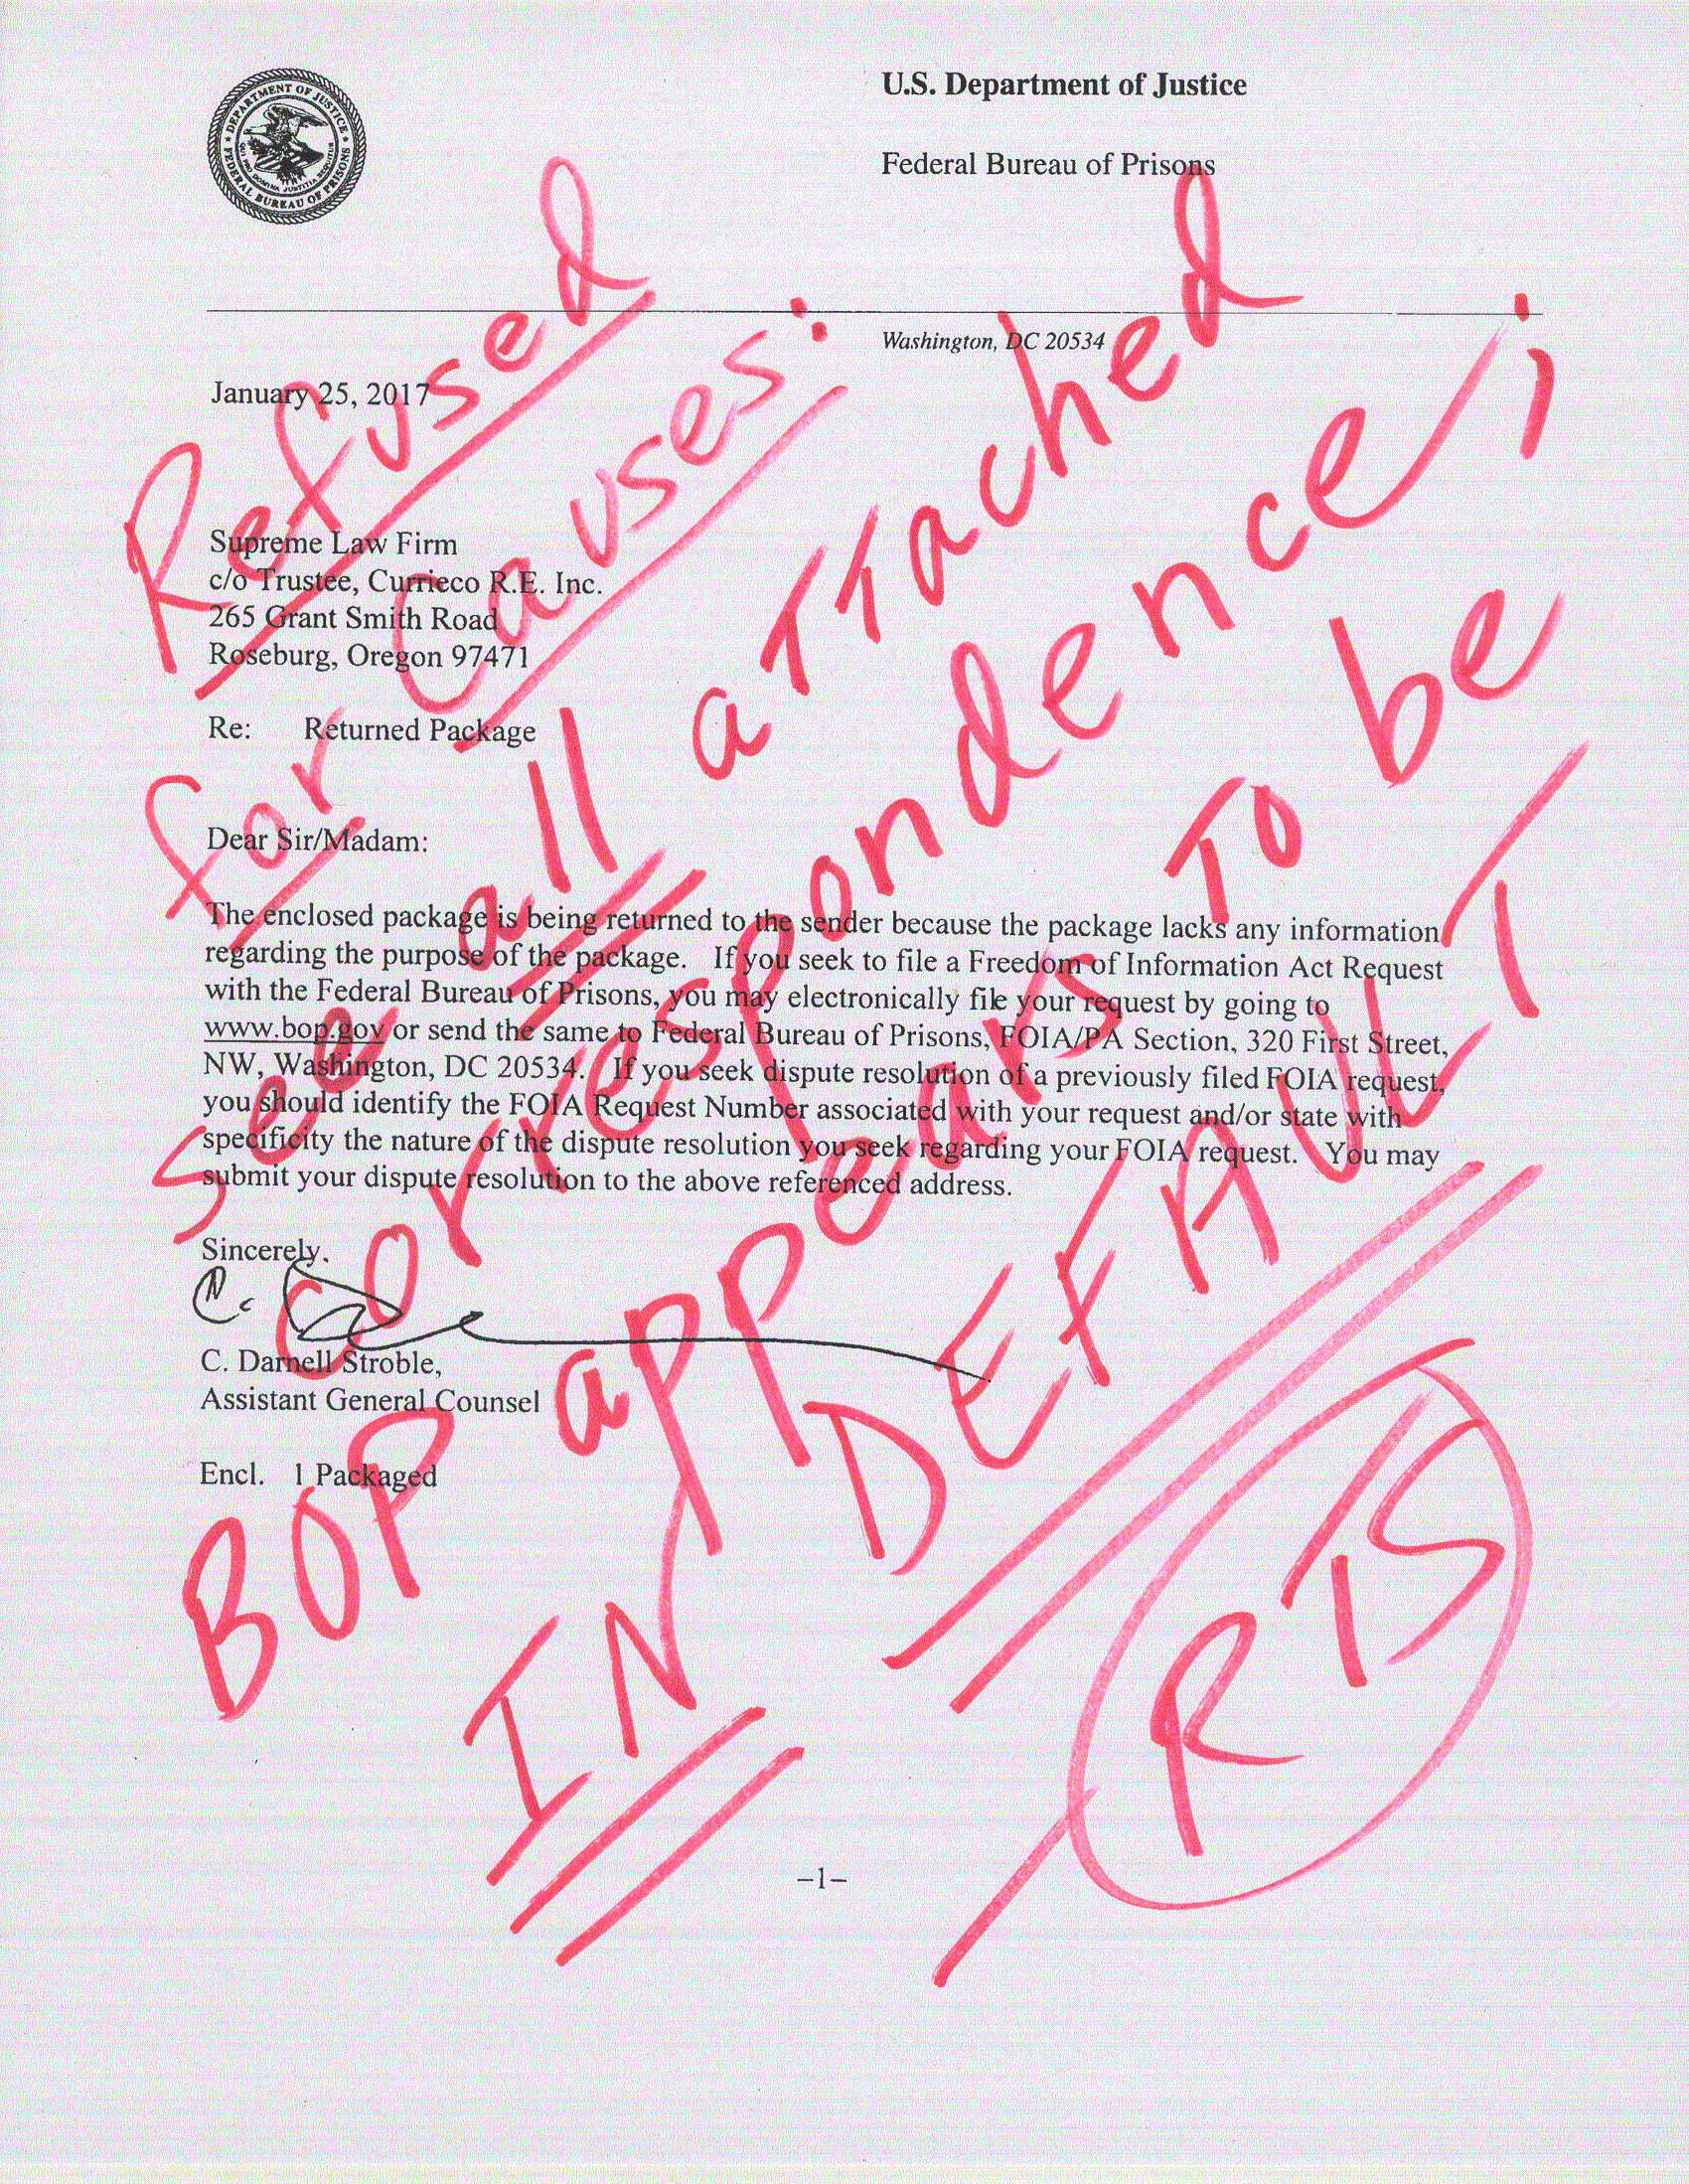 DEPARTMENT OF JUSTICE
FEDERAL BUREAU OF PRISONS
QUI PRO DOMINA JUSTITIA SEQUITUR
U.S. Department of Justice
Federal Bureau of Prisons
Washington, DC 20534
January 25, 2017
Supreme Law Firm
c/o Trustee, Currieco R.E. Inc.
265 Grant Smith Road
Roseburg, Oregon 97471
Re: Returned Package
Dear Sir/Madam:
The enclosed package is being returned to the sender because the package lacks any information
regarding the purpose of the package. If you seek to file a Freedom of Information Act Request
with the Federal Bureau of Prisons, you may electronically file your request by going to
www.bop.gov or send the same to Federal Bureau of Prisons, FOIA/PA Section, 320 First Street,
NW, Washington, DC 20534. If you seek dispute resolution of a previously filed FOIA request,
you should identify the FOIA Request Number associated with your request and/or state with
specificity the nature of the dispute resolution you seek regarding your FOIA request. You may
submit your dispute resolution to the above referenced address.
Sincerely,
C. Darnell Stroble,
Assistant General Counsel
Encl. 1 Packaged
–1–
Refused
for Causes:
see all aTTached
correspondence;
BOP appears To be
IN DEFAULT!
RTS